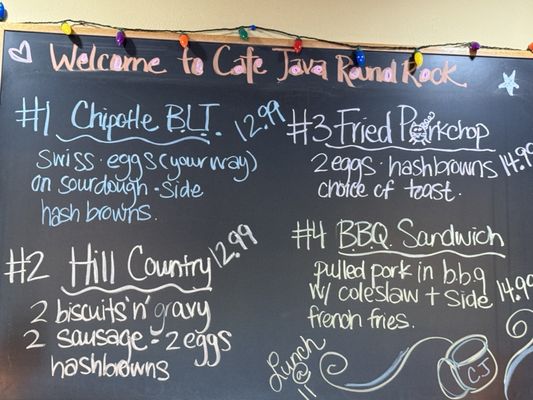 Welcome to Cafe Java Round Rock
#1 Chipotle B.L.T. 12.99
swiss · eggs (your way)
on sourdough - side
hash browns.
#2 Hill Country 12.99
2 biscuits 'n' gravy
2 sausage - 2 eggs
hashbrowns
#3 Fried Porkchop
2 eggs · hashbrowns 14.99
choice of toast.
#4 B.B.Q. Sandwich
pulled pork in b.b.q
w/ coleslaw + side 14.99
french fries.
Lunch
@
11
CJ